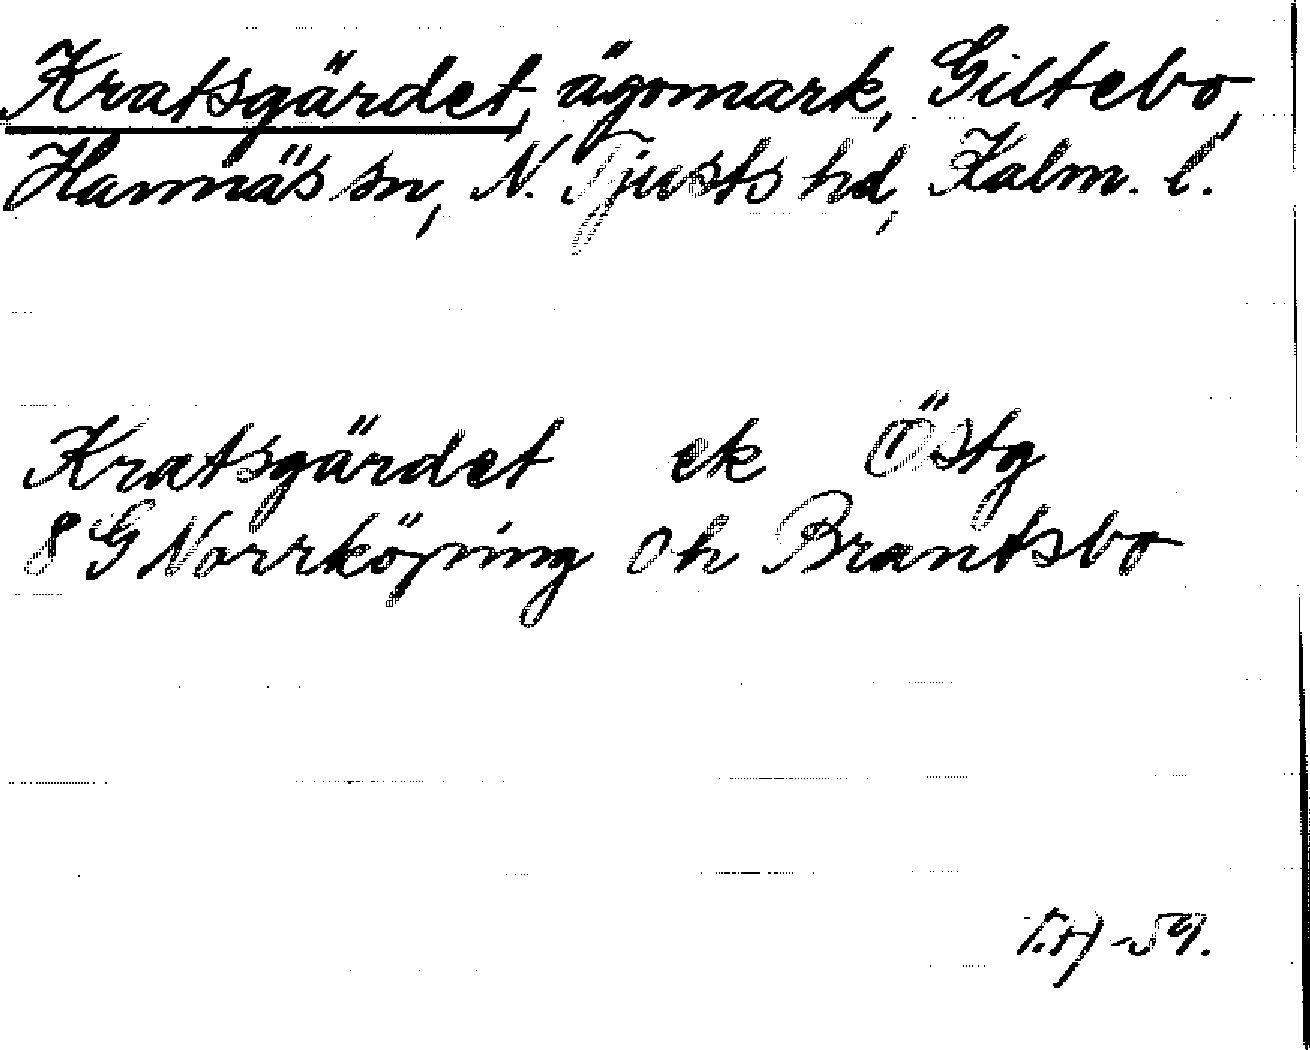 Kratsgärdet, ägomark, Giltebo,
Hannäs sn, N. Tjusts hd, Kalm. l.
Kratsgärdet ek Östg
8 G Norrköping Oh Brantsbo
T.H -59.